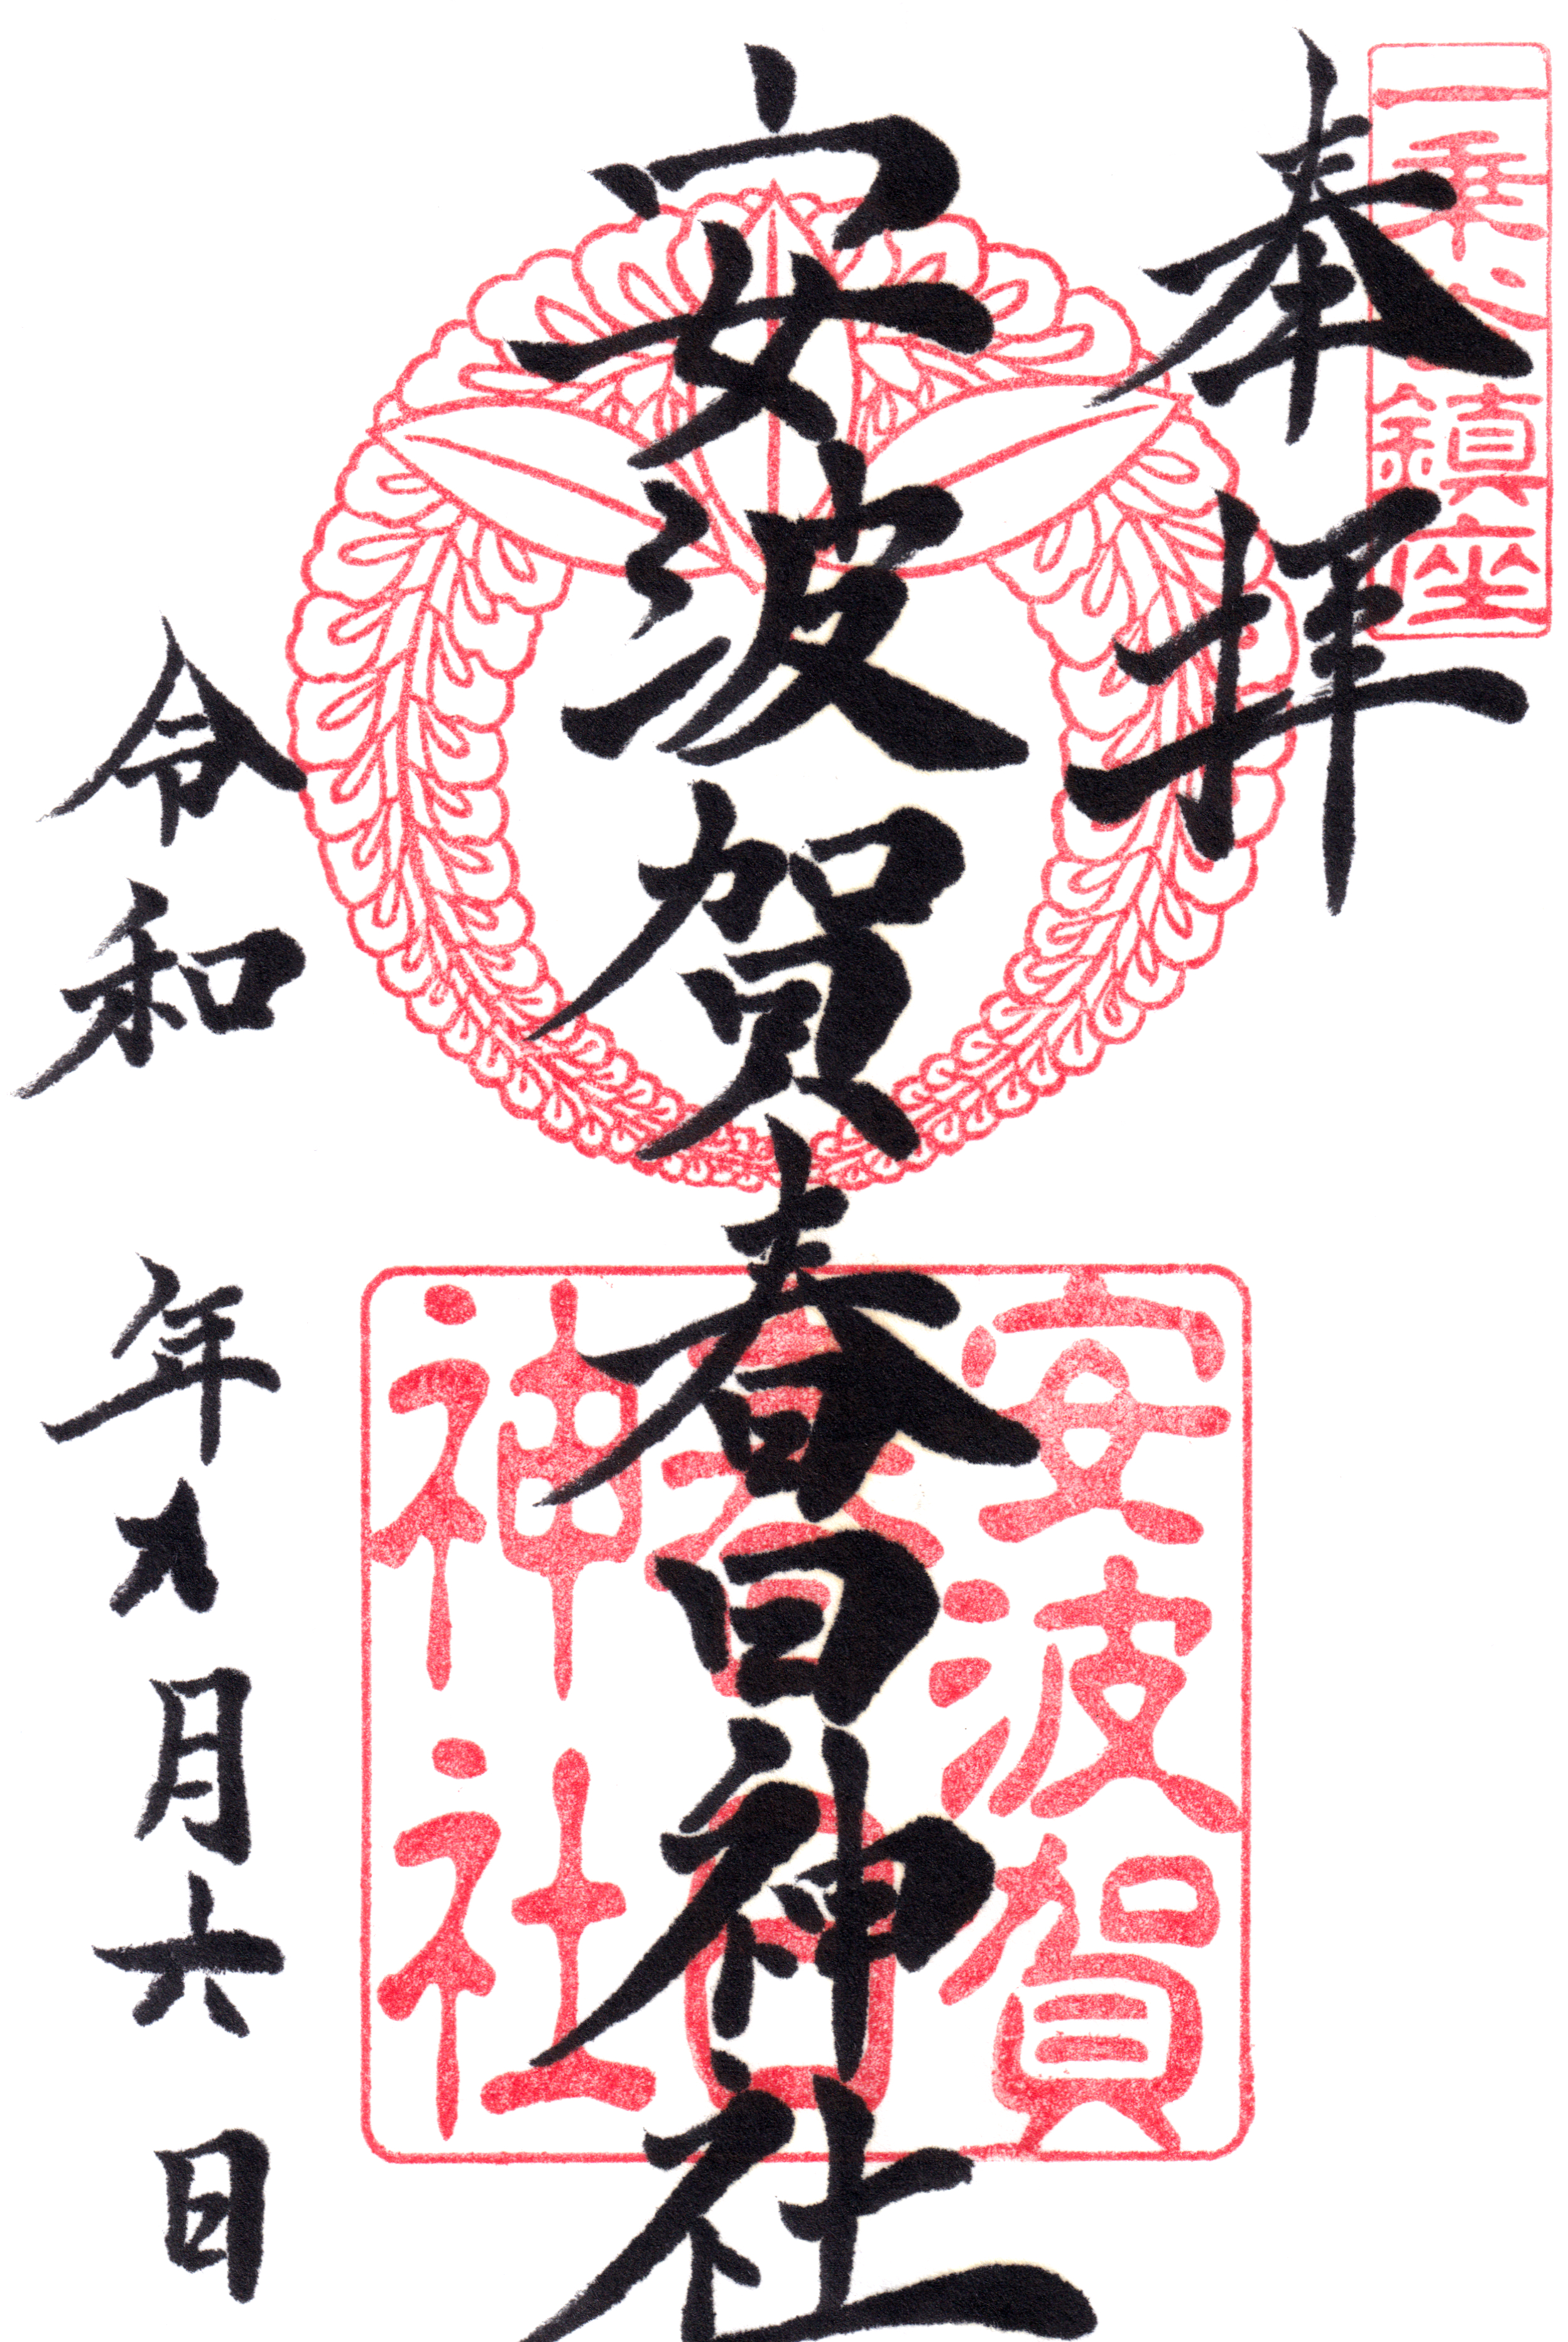 一乗谷鎮座
奉拝
安波賀春日神社
安波賀
春日
神社
令和 年 月六日